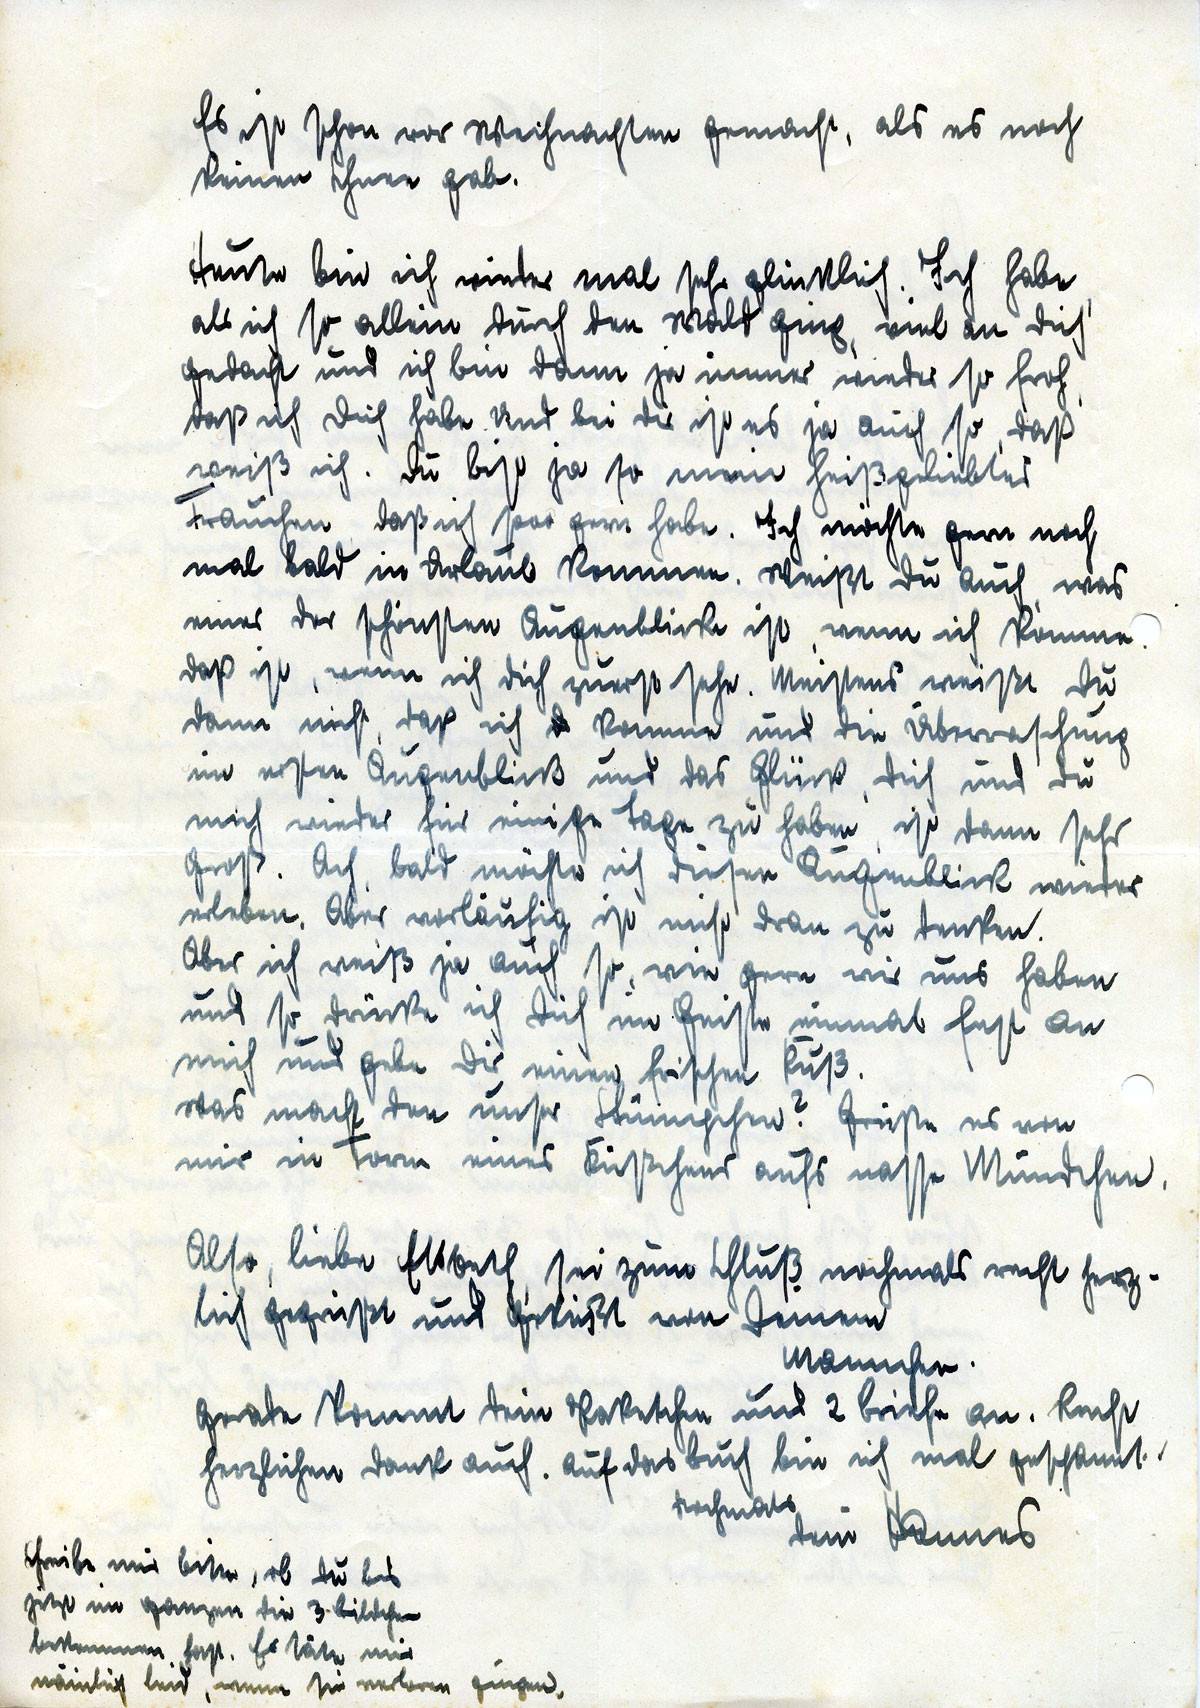 Es ist schon vor Weihnachten gemacht, als es noch
keinen Schnee gab.
Heute bin ich wieder mal sehr glücklich. Ich habe,
als ich so allein durch den Wald ging, viel an Dich
gedacht und ich bin dann ja immer wieder so froh,
daß ich Dich habe. Und bei dir ist es ja auch so, daß
weiß ich. Du bist ja so mein heißgeliebtes
Frauchen, daß ich sooo gern habe. Ich möchte gern noch
mal bald in Urlaub kommen. Weißt Du auch, was
einer der schönsten Augenblicke ist, wenn ich komme.
daß ist, wenn ich Dich zuerst sehe. Meistens weißt Du
dann nicht, daß ich komme und die Überraschung
im ersten Augenblick und das Glück, Dich und Du
mich wieder für einige Tage zu haben, ist dann sehr
groß. Ach, bald möchte ich diesen Augenblick wieder
erleben. Aber vorläufig ist nicht dran zu denken.
Aber ich weiß ja auch so, wie gern wir uns haben
und so drücke ich Dich im Geiste einmal fest an
mich und gebe Dir einen frischen Kuß.
Was macht den unser Stümpchen? Grüße es von
mir in Form eines Küßchens aufs nasse Mündchen.
Also, liebe Elsbeth, sei zum Schluß nochmals recht herz-
lich gegrüßt und geküßt von Deinem
Mannchen.
Grade kommt dein Paketchen und 2 Briefe an. Recht
herzlichen Dank auch. Auf das Buch bin ich mal gespannt.
Nochmals
dein Hannes
Schreibe mir bitte, ob Du bis
jetzt im ganzen die 3 Bildchen
bekommen hast. Es täte mir
nämlich leid, wenn sie verloren gingen.